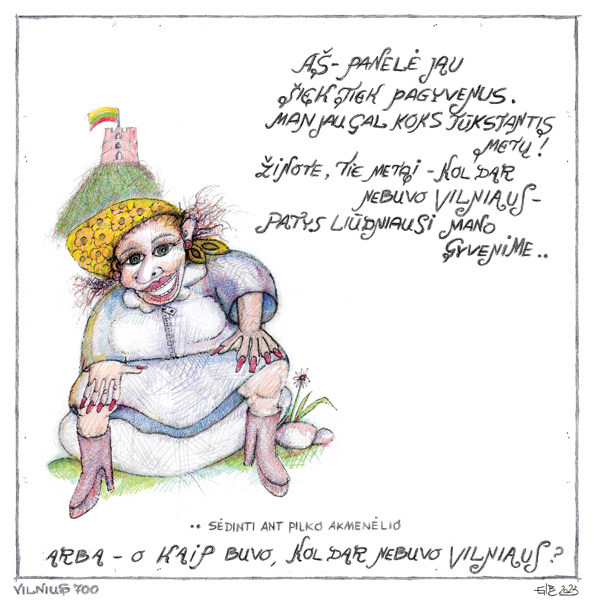 AŠ - PANELĖ JAU
ŠIEK TIEK PAGYVENUS.
MAN JAU GAL KOKS TŪKSTANTIS
METŲ!
ŽINOTE, TIE METAI - KOL DAR
NEBUVO VILNIAUS -
PATYS LIŪDNIAUSI MANO
GYVENIME..
•• SĖDINTI ANT PILKO AKMENĖLIO
ARBA - O KAIP BUVO, KOL DAR NEBUVO VILNIAUS?
VILNIUS 700
2023